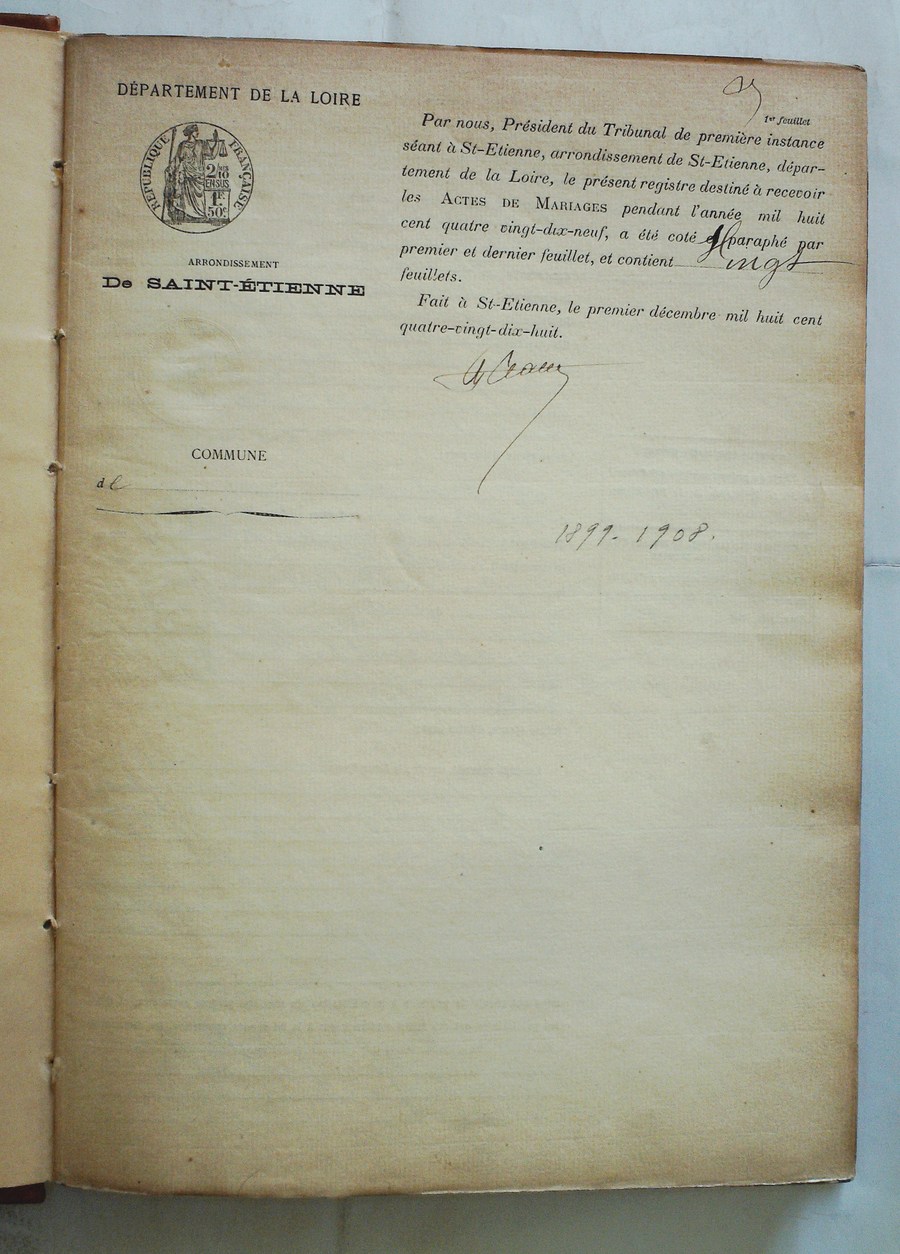 DÉPARTEMENT DE LA LOIRE
RÉPUBLIQUE FRANÇAISE
2/10
EN SUS
1F
50c
ARRONDISSEMENT
De SAINT-ÉTIENNE
COMMUNE
de
1er feuillet
Par nous, Président du Tribunal de première instance
séant à St-Etienne, arrondissement de St-Etienne, dépar-
tement de la Loire, le présent registre destiné à recevoir
les ACTES DE MARIAGES pendant l'année mil huit
cent quatre vingt-dix-neuf, a été coté et paraphé par
premier et dernier feuillet, et contient vingt
feuillets.
Fait à St-Etienne, le premier décembre mil huit cent
quatre-vingt-dix-huit.
1899-1908.